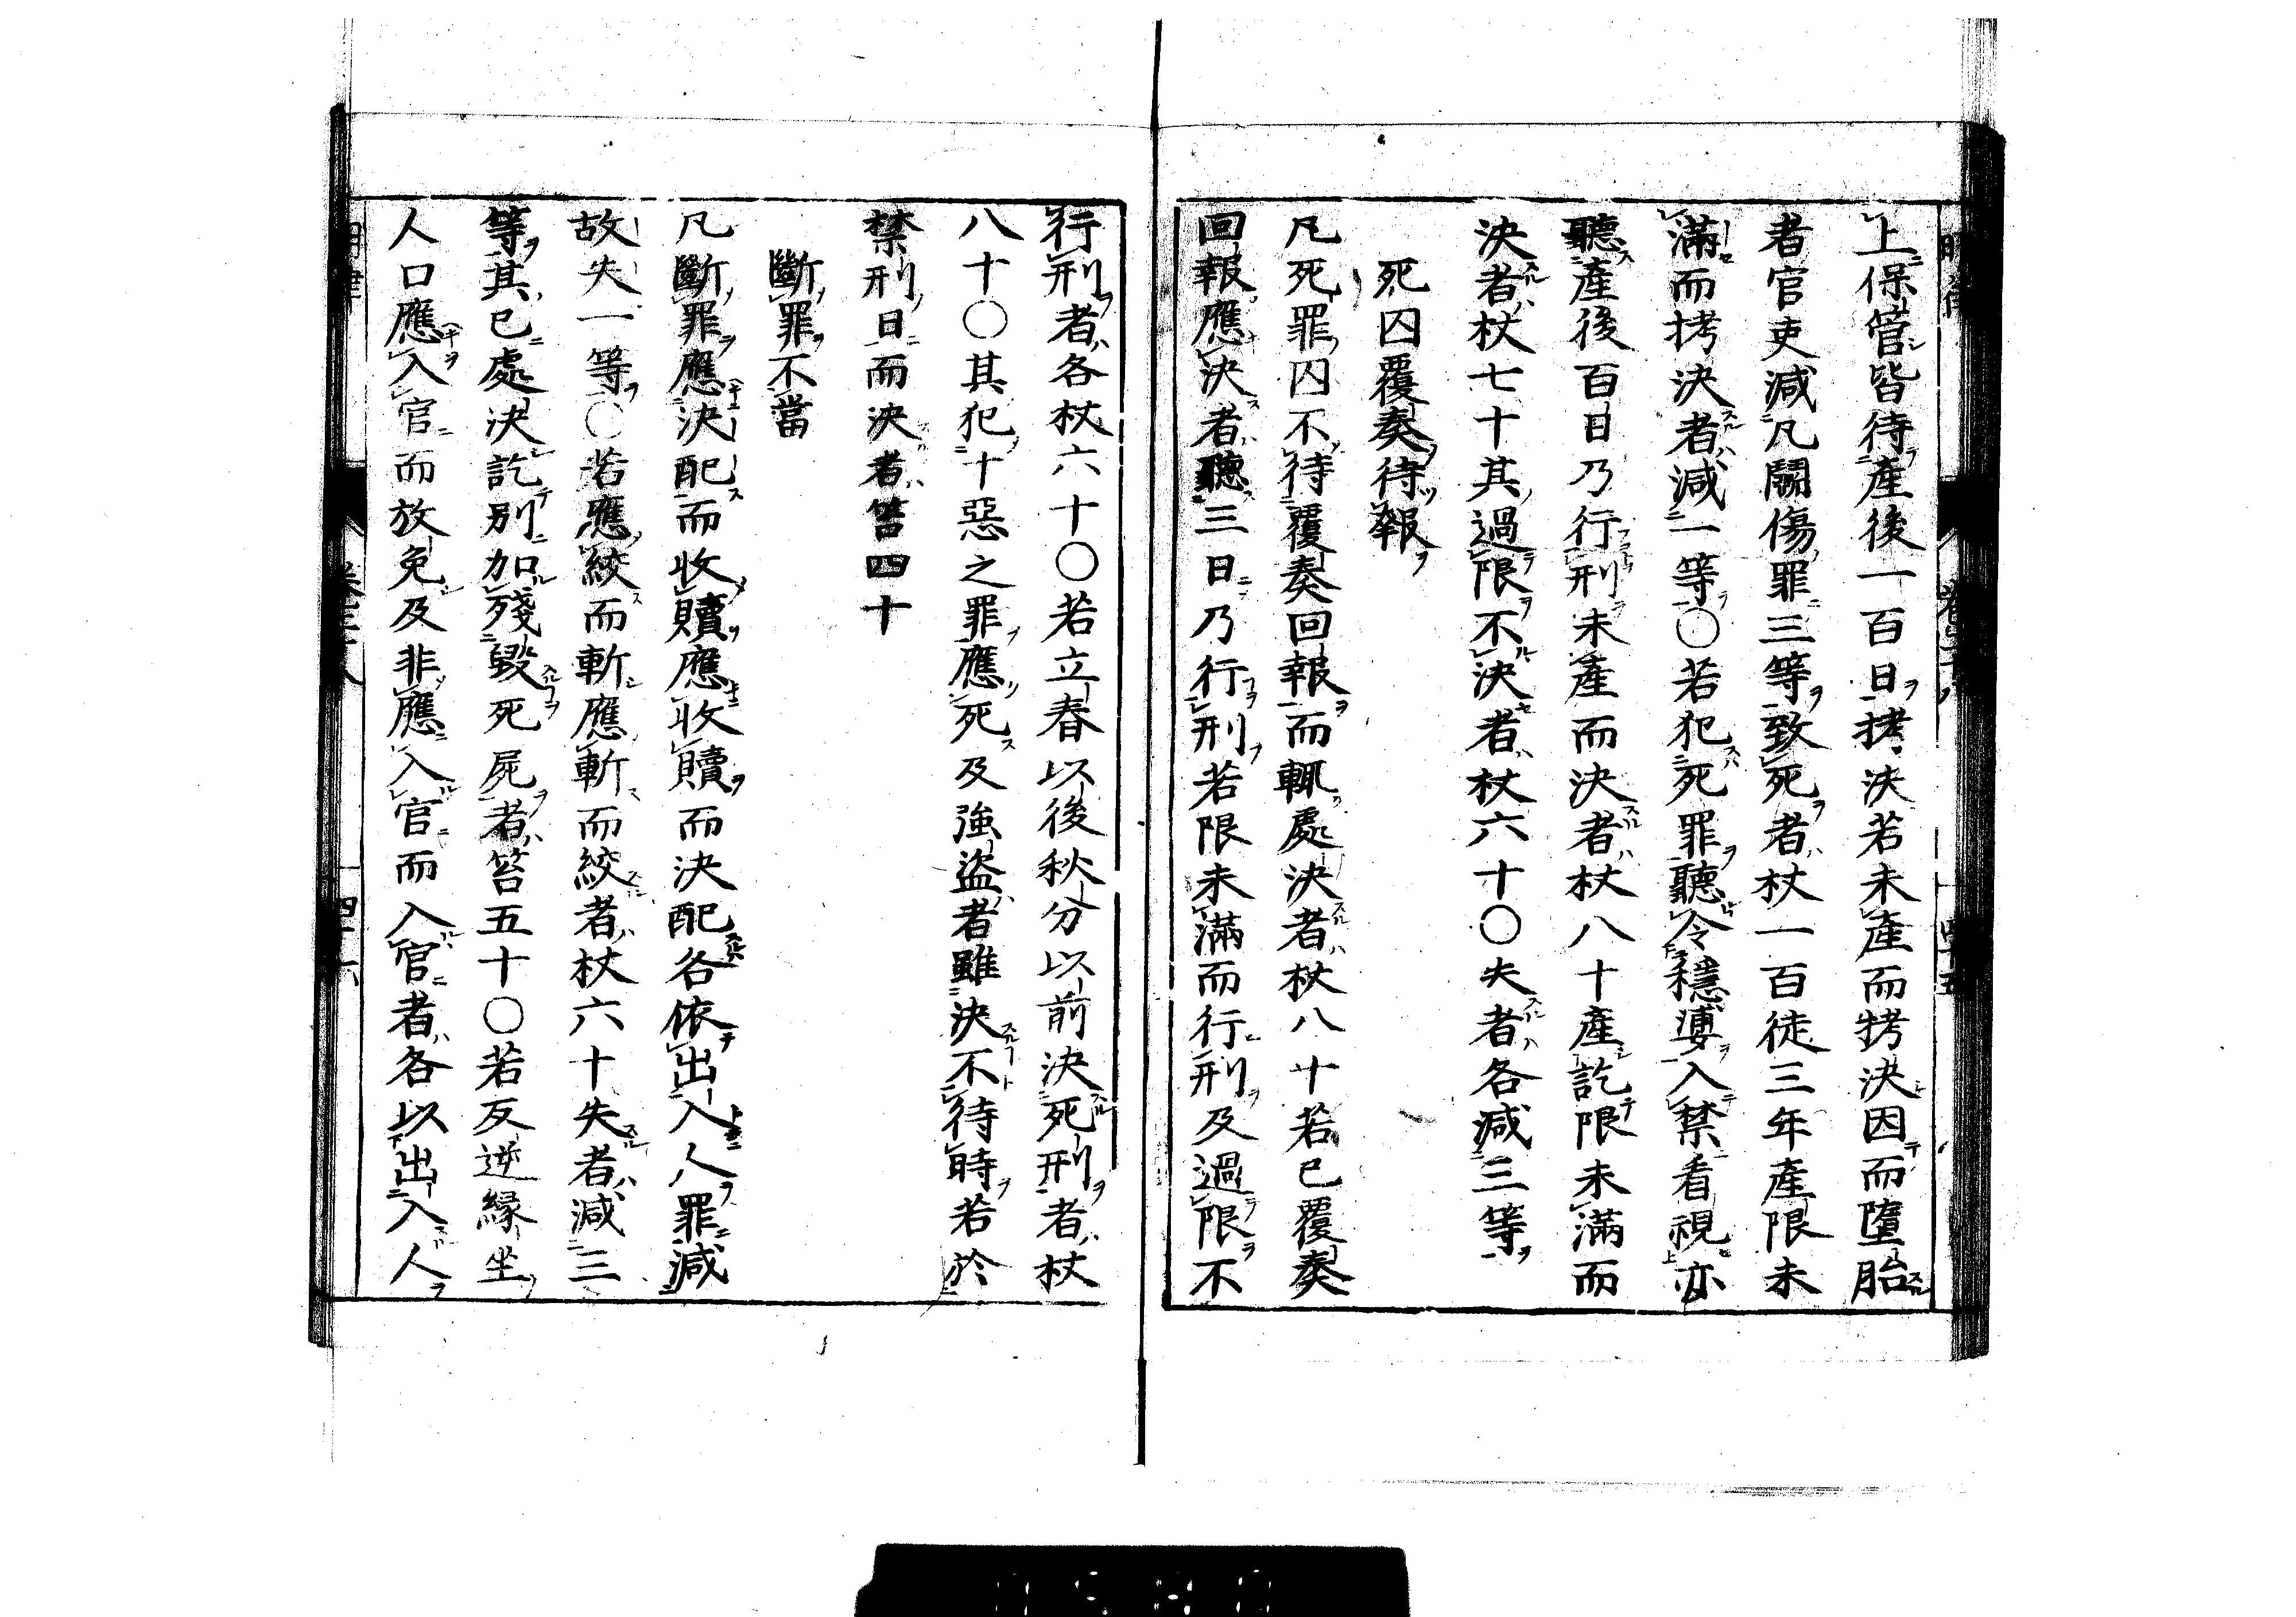 上保管皆待產後一百日拷決若未產而拷決因而墮胎
者官吏減凡鬭傷罪三等致死者杖一百徒三年產限未
滿而拷決者減一等○若犯死罪聽令穩婆入禁看視亦
聽產後百日乃行刑未產而決者杖八十產訖限未滿而
決者杖七十其過限不決者杖六十○失者各減三等
死囚覆奏待報
凡死罪囚不待覆奏回報而輒處決者杖八十若已覆奏
回報應決者聽三日乃行刑若限未滿而行刑及過限不
行刑者各杖六十○若立春以後秋分以前決死刑者杖
八十○其犯十惡之罪應死及強盜者雖決不待時若於
禁刑日而決者笞四十
斷罪不當
凡斷罪應決配而收贖應收贖而決配各依出入人罪減
故失一等○若應絞而斬應斬而絞者杖六十失者減三
等其已處決訖別加殘毀死屍者笞五十○若反逆緣坐
人口應入官而放免及非應入官而入官者各以出入人